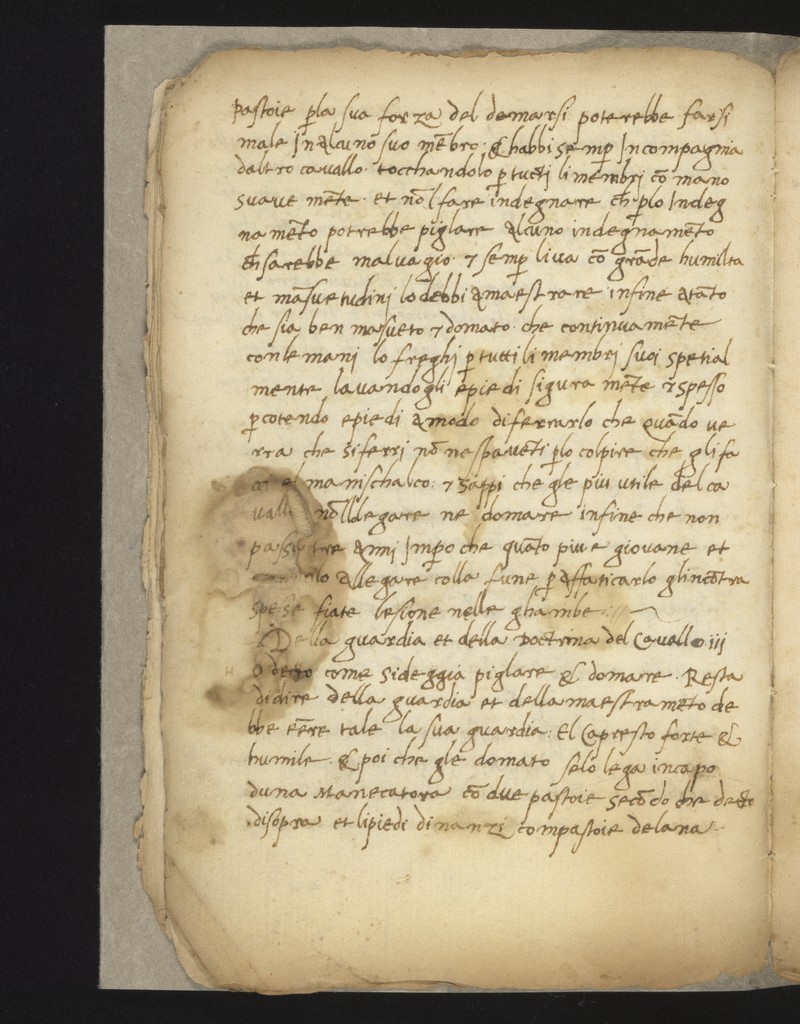 pastoie p̱la sua forza del domarsi poterebbe farsi
male In alcuno suo mēbro · & habbi semp̱ In compagnia
daltro cavallo · tocchandolo p̱ tucti li membri cō mano
suave mēte · et nō l fare indegnare ch̄ p̱lo Indeg
na mēto potrebbe piglare alcuno indegnamēto
ch̄ sarebbe malvagio · ⁊ semp̱ liva cō grāde humilta
et māsuetudinj lo debbi amaestrare infine atāto
che sia ben māsueto ⁊ domato · che continuamēte
con le mani lo freghi p̱ tutti li membrj suoi spetial
mente lavandogli e piedi sigura mēte & spesso
p̱cotendo e piedi amodo di ferrarlo che quādo ve
rra che si ferri nō na spavēti p̱lo colpire che gli fa
el manischalco : ⁊ sappi che gle piu utile del ca
vallo nōllegare ne domare infine che non
passi tre anni Imp̱o che quāto piu e giovane et
lo allegare colla fune p̱ affaticarlo glincōtra
spesse fiate lesione nelle ghambe
Della guardia et della doctrina del Cavallo iij
O decto come si deggia piglare & domare · Resta
di dire della guardia et della maestramēto de
bbe eēre tale la sua guardia : El Capresto forte &
humile · & poi che gle domato selo lega in capo
duna Manecatora cō due pastoie secōdo che decto
disopra et li piedi dinanzi com pastoie de lana ·